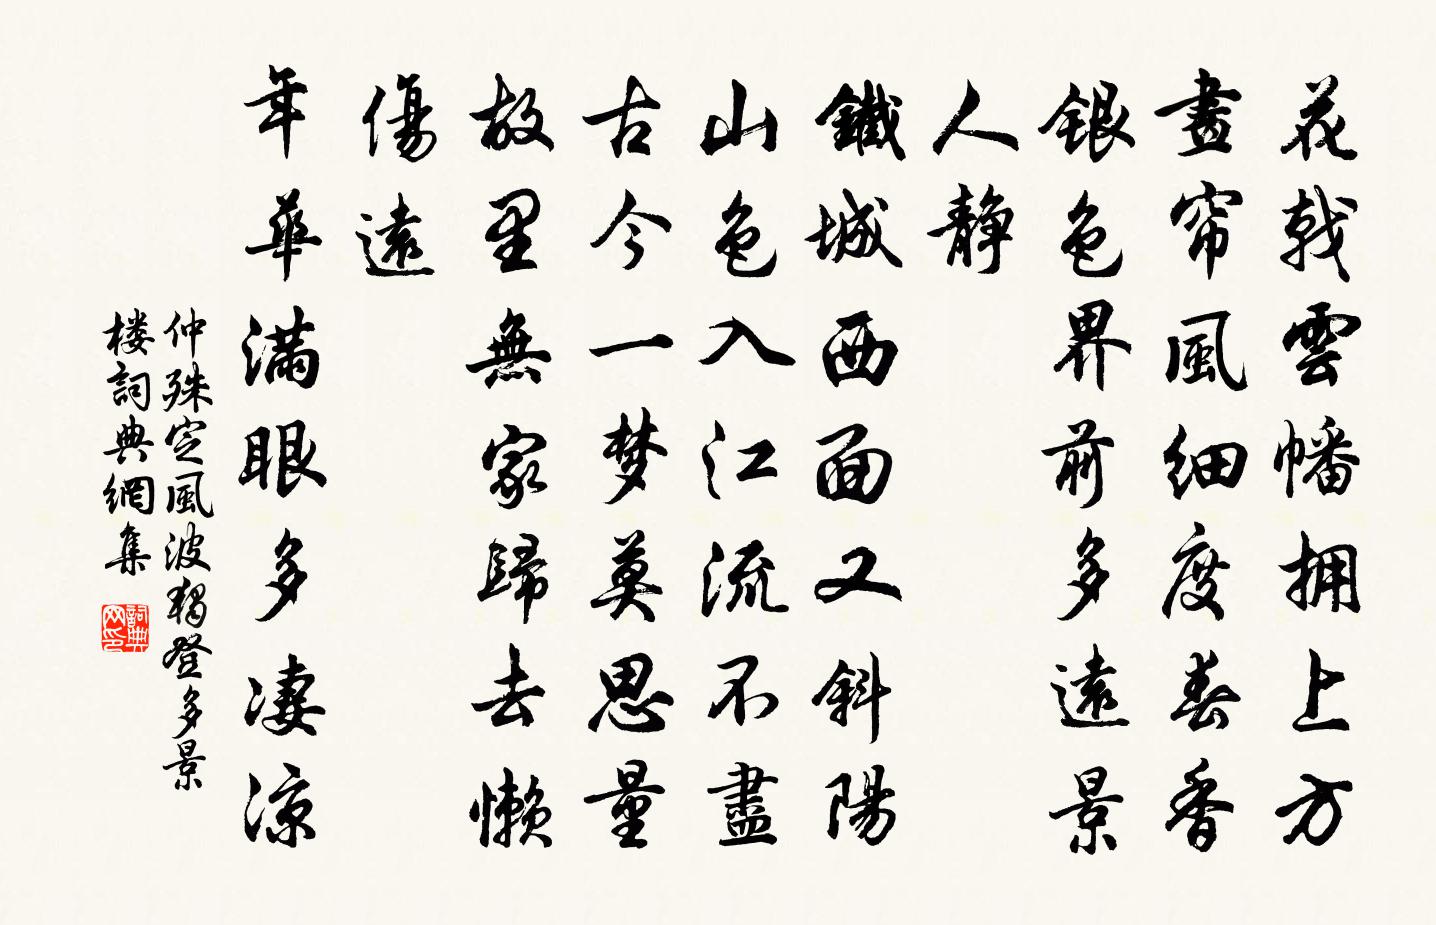 花戟雲幡拥上方
畫帘風細度春香
銀色界前多遠景
人靜
鐵城西面又斜陽
山色入江流不盡
古今一梦莫思量
故里無家歸去懒
傷遠
年華滿眼多凄凉
仲殊定風波獨登多景
楼詞典網集
詞典网印